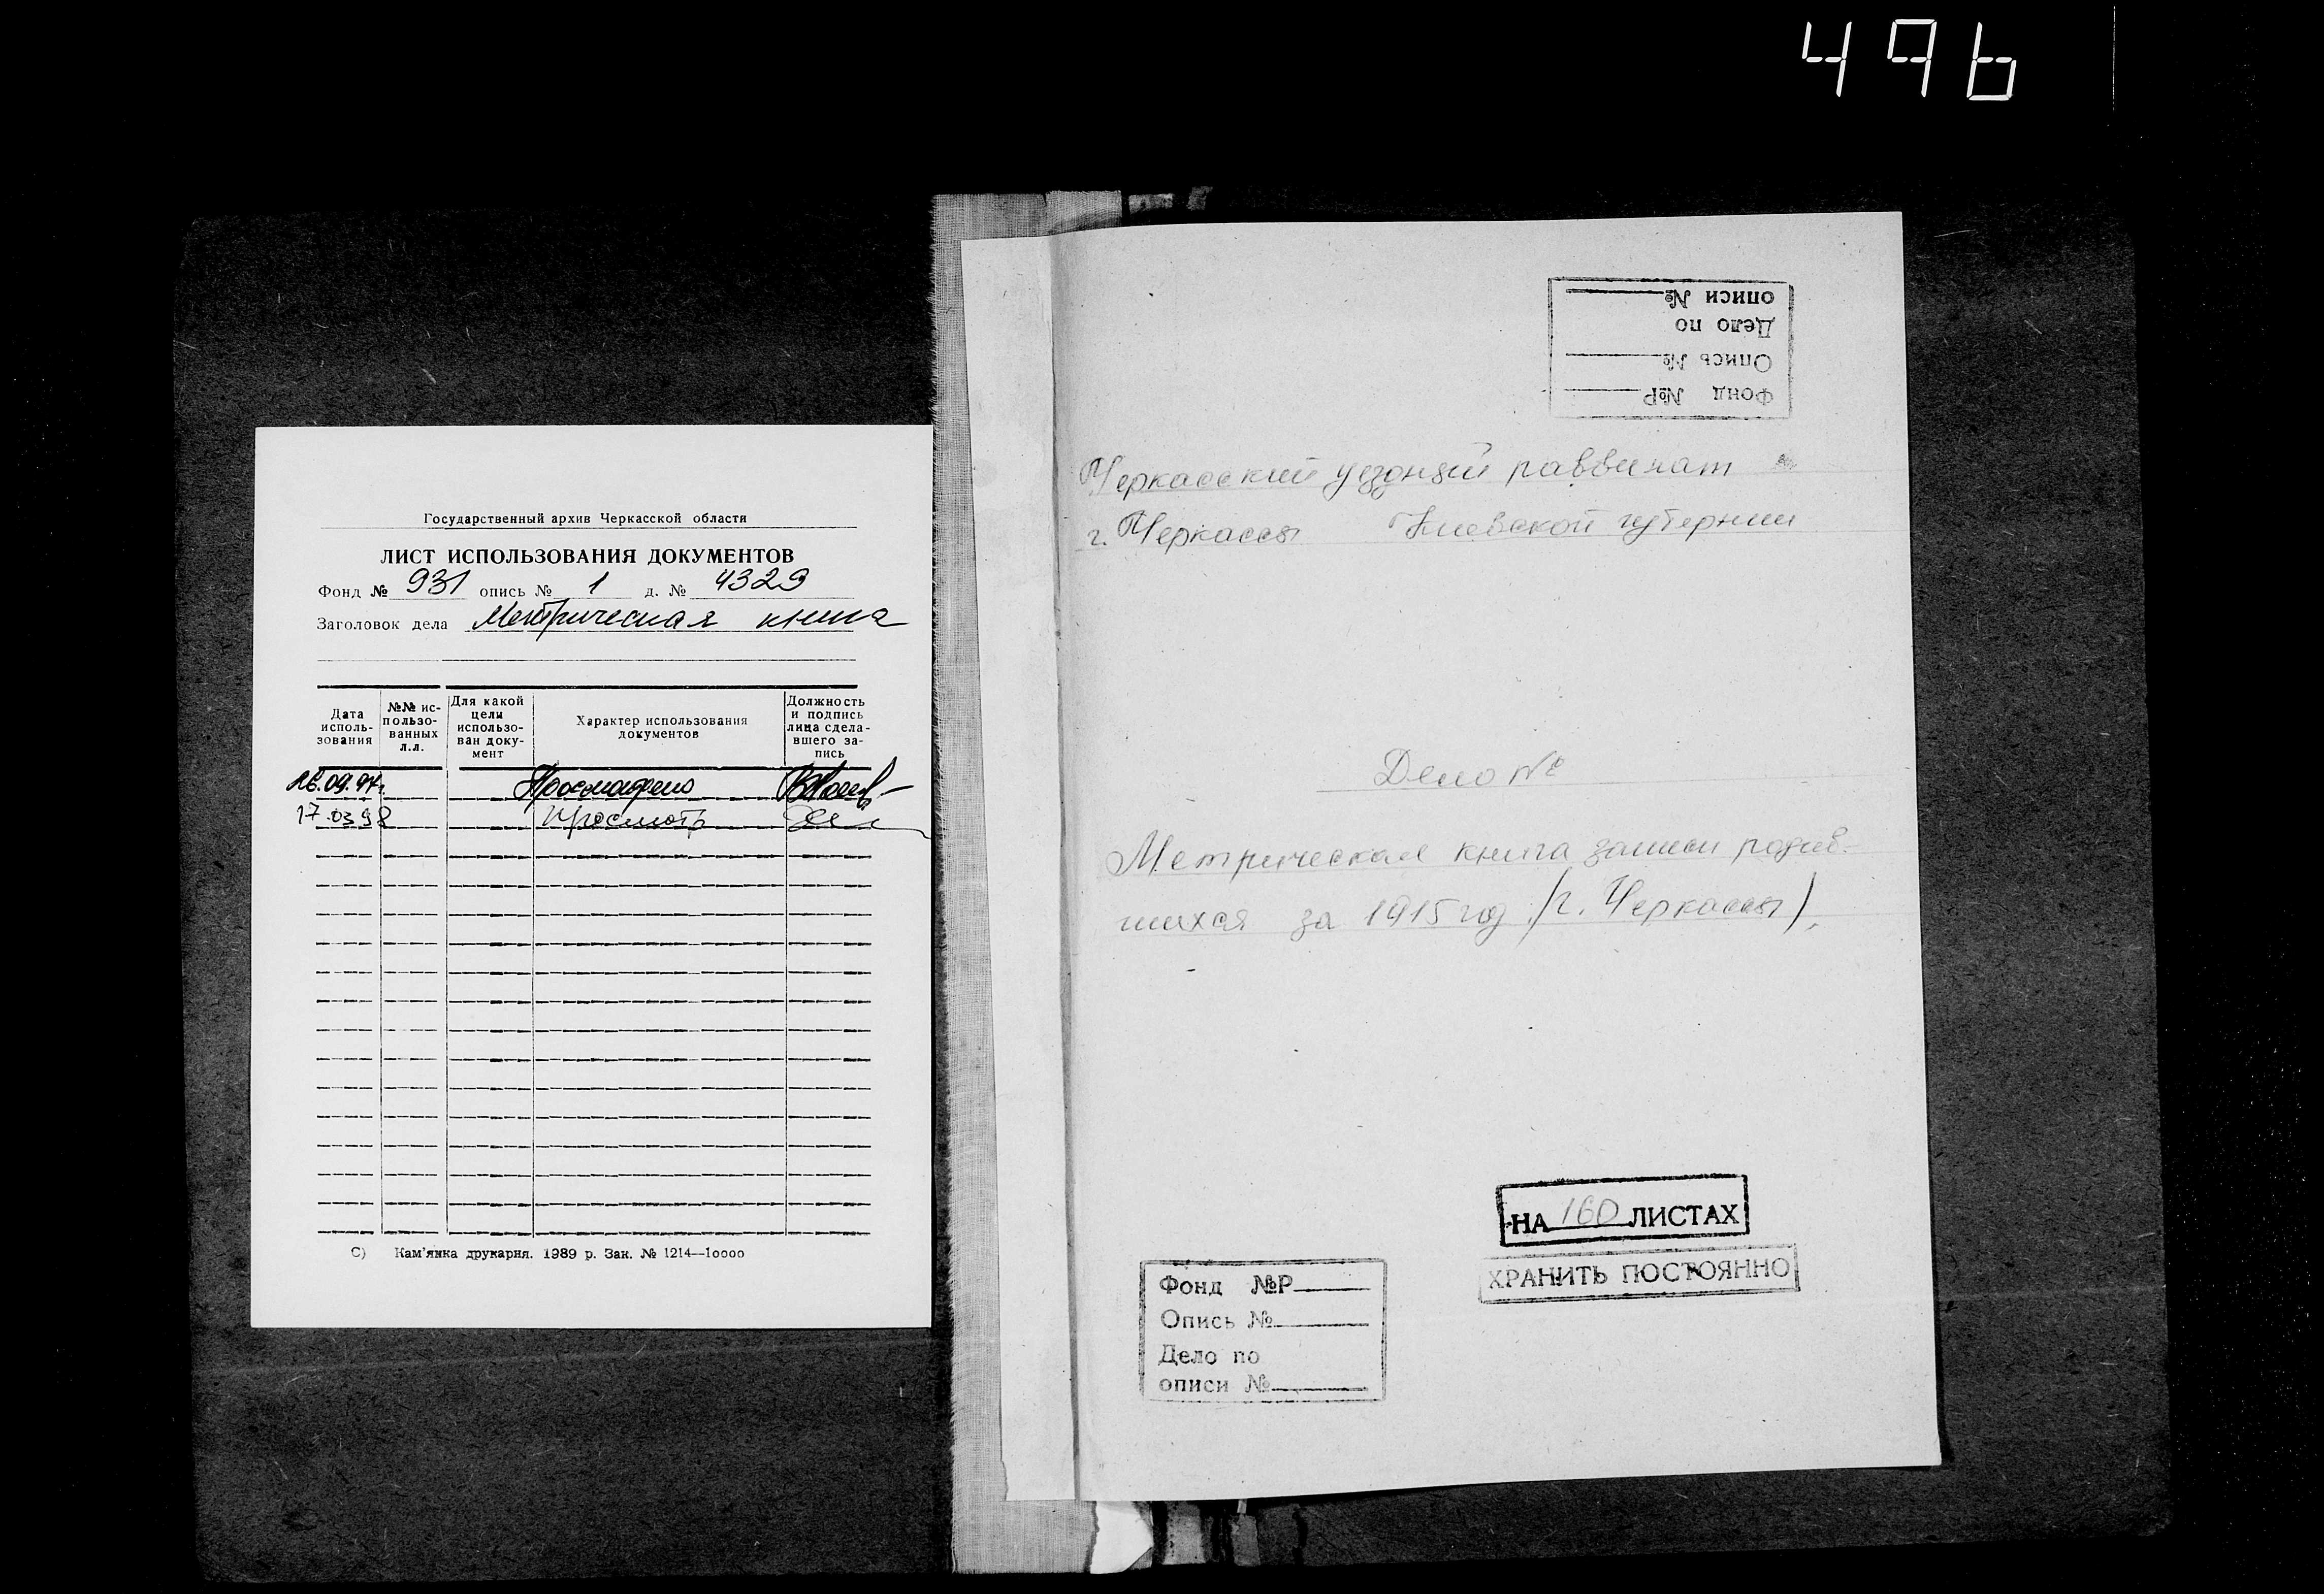 496
Государственный архив Черкасской области
ЛИСТ ИСПОЛЬЗОВАНИЯ ДОКУМЕНТОВ
Фонд № 931 опись № 1 д. № 4329
Заголовок дела Метрическая книга
Дата исполь-зования
№№ ис-пользо-ванных л.л.
Для какой цели использо-ван доку-мент
Характер использования документов
Должность и подпись лица сдела-вшего за-пись
26.09.94г. Просмотрено
17.03.98 Просмотр
С) Кам'янка друкарня. 1989 р. Зак. № 1214—10000
Фонд №Р
Опись №
Дело по
описи №
Черкасский уездный раввинат
г. Черкассы Киевской губернии
Дело №
Метрическая книга записи родив-
шихся за 1915 год /г. Черкассы/.
НА 160 ЛИСТАХ
ХРАНИТЬ ПОСТОЯННО
Фонд №Р
Опись №
Дело по
описи №